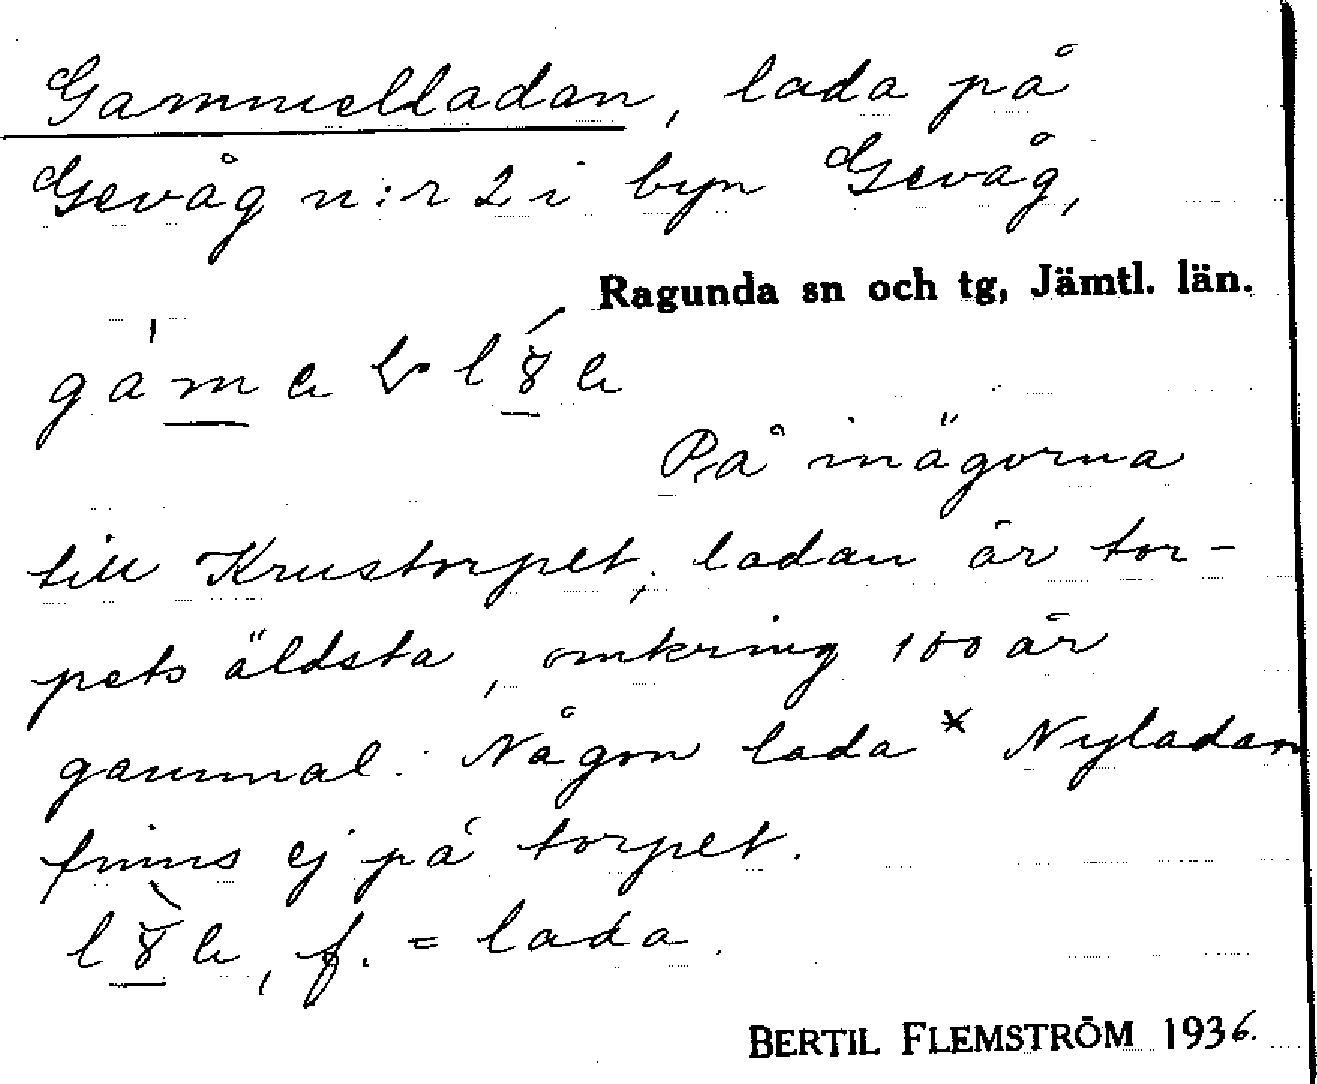 Gammelladan, lada på
Gevåg n:r 2 i byn Gevåg,
Ragunda sn och tg, Jämtl. län.
På inägorna
till Krustorpet; ladan är tor-
pets äldsta, omkring 100 år
gammal. Någon lada * Nyladan
finns ej på torpet.
f. = lada.
BERTIL FLEMSTRÖM 1936.